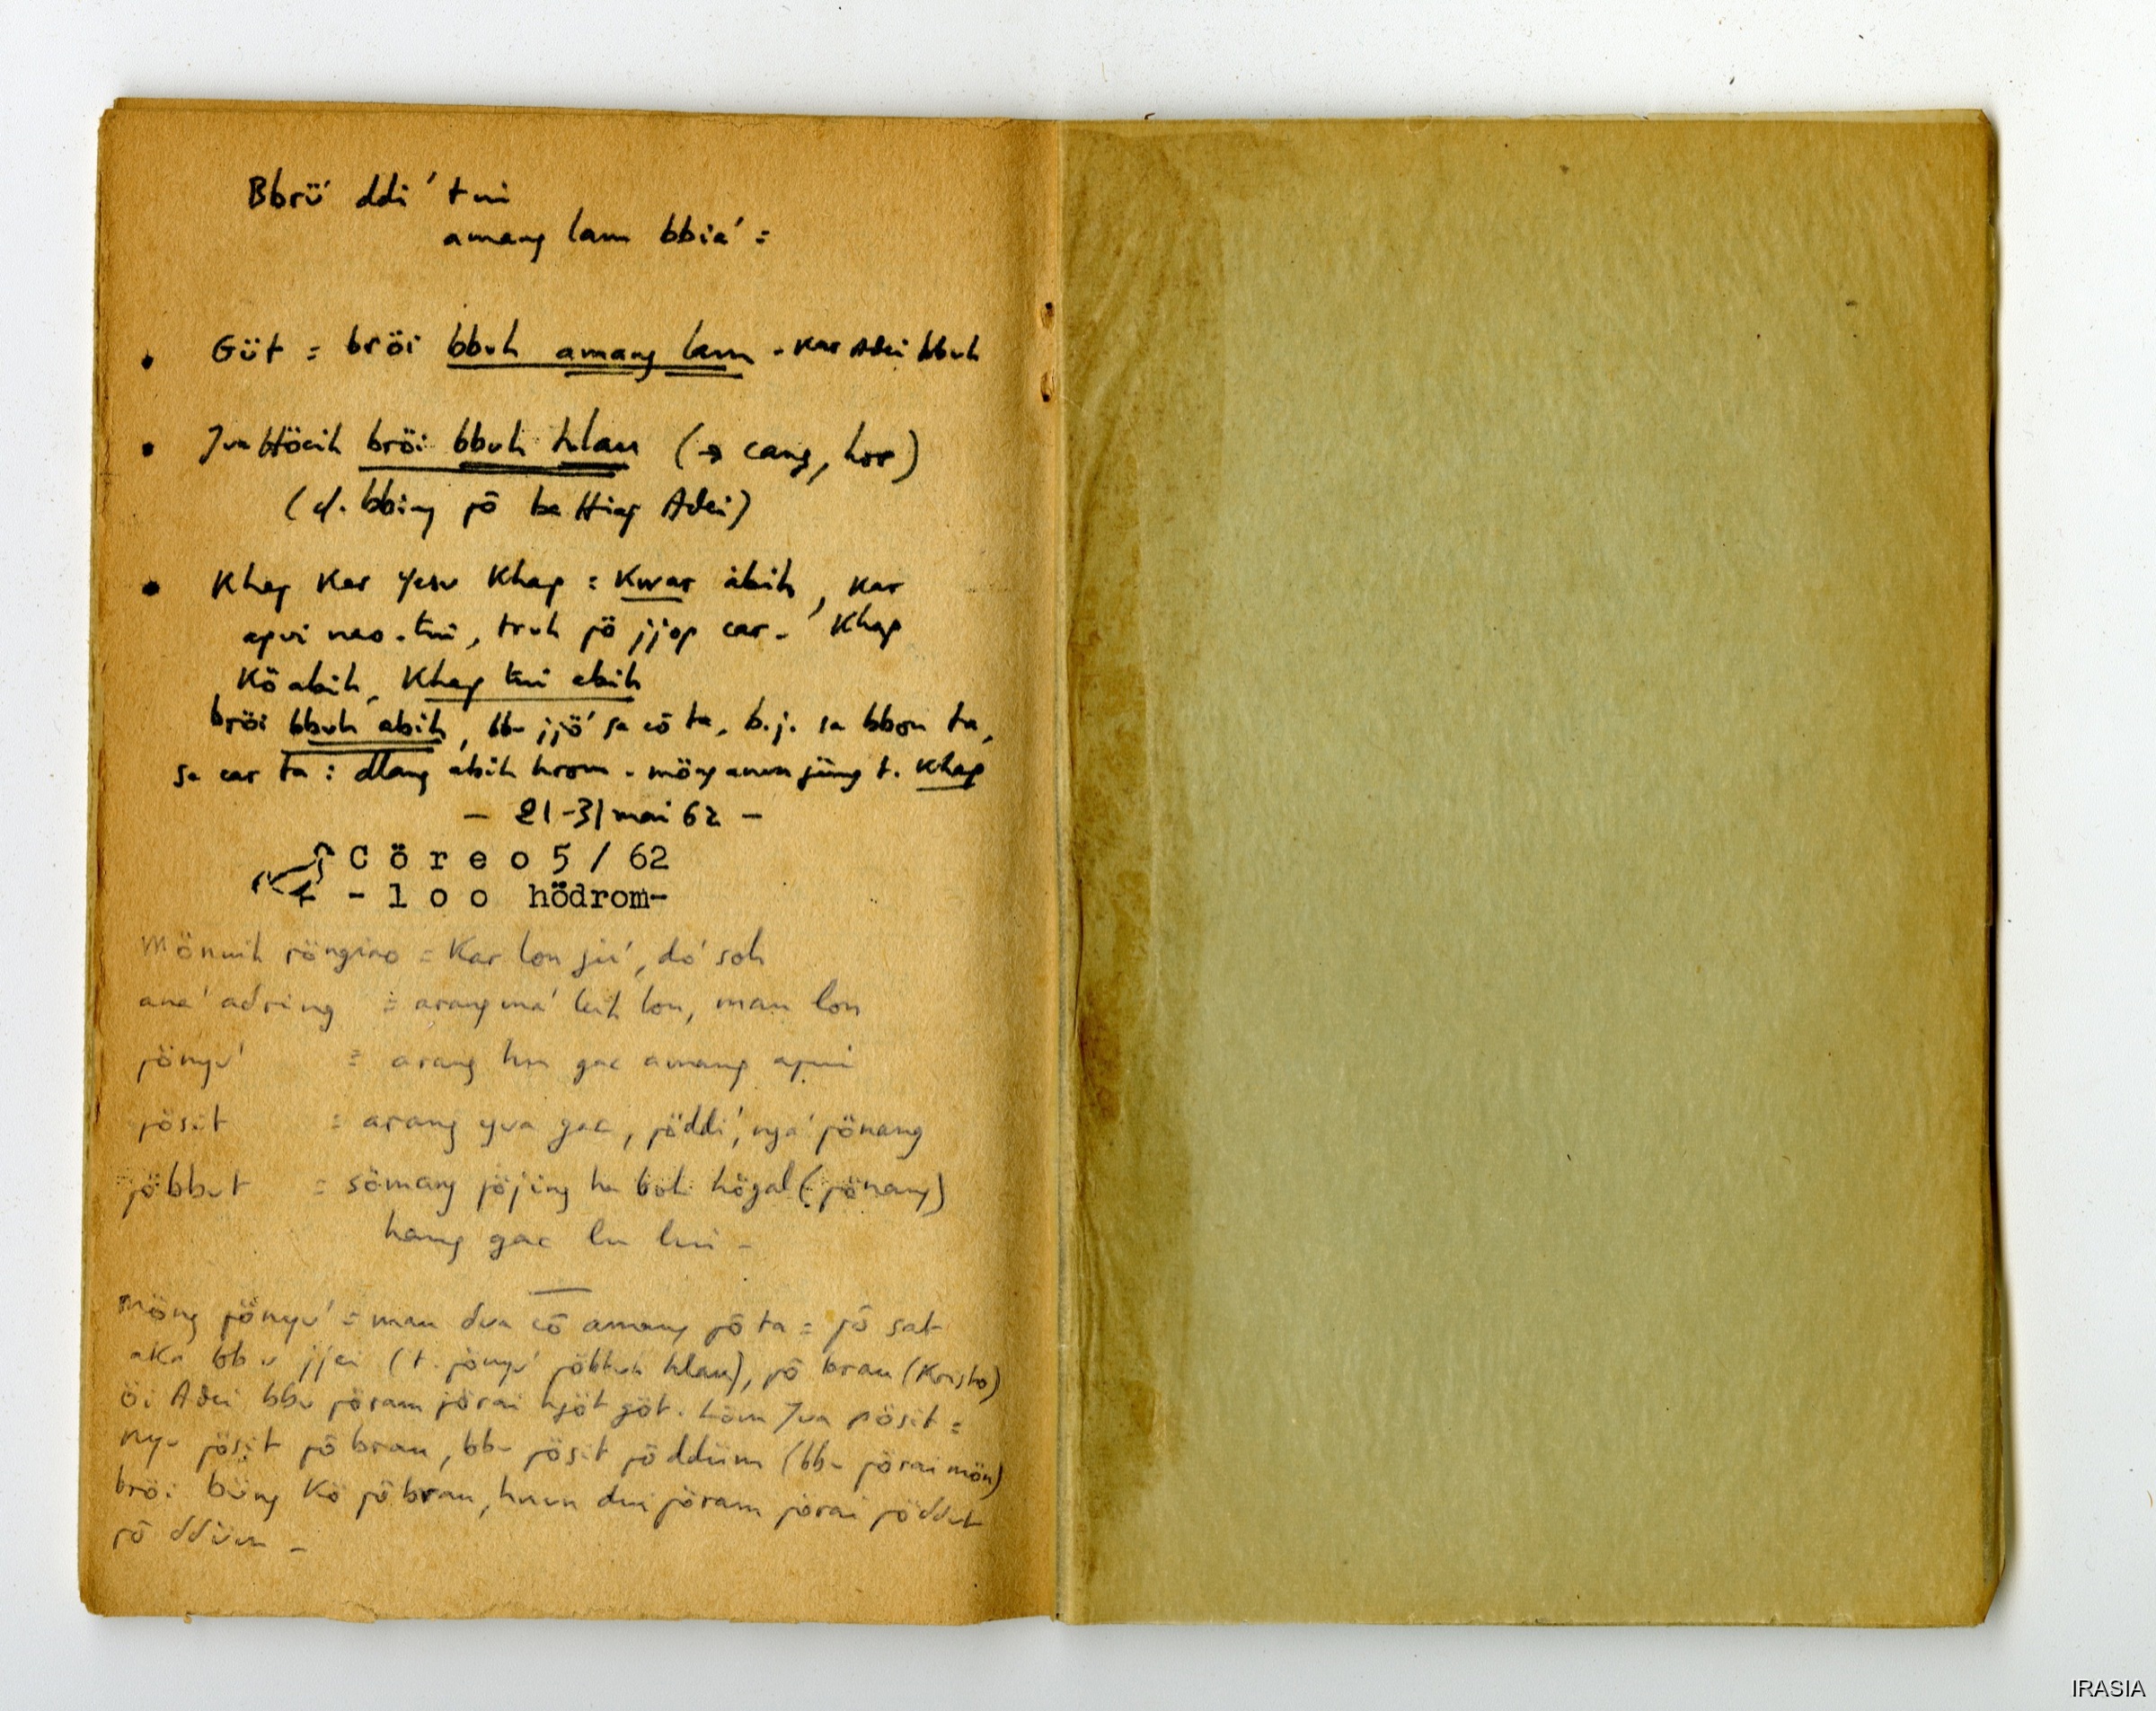 Bbrü' ddi' tui
amang lam bbia' =
• Güt = bröi bbuh amang lam - kar Adei bbuh
• Jua Höcih bröi bbuh hlau (→ cang, hor)
(cf. bbing pö ba Hiap Adei)
• Khap Kar Yesu Khap = Kwar abih, kar
apui nao - tui, truh pö jjop car - Khap
Kö abih, Khap tui abih
bröi bbuh abih, bbu jjö' sa cö ta, b.j. sa bbon ta,
sa car ta : dlang abih hrom - möng anun jing t. Khap
— 21-31 mai 62 —
C ö r e o 5 / 62
- 1 o o hödrom-
Mönuih röngiao = Kar lon jü', do' soh
ana' adring = arang ma' leh lon, man lon
pönyu' = arang hu gac amang apui
pösit = arang yua gac, pöddi', nga' pönang
pöbbut = sömang pöjing ha boh högal (pönang)
hang gac lu lui -
Möng pönyu' = man dua cö amang pö ta = pö sat
aka bbu jjei (t. pönyu' pöbbuh hlau), pö brau (Kristo)
öi Adei bbu pöram pörai hjöt göt. Löm Jua pösit =
nyu pösit pö brau, bbu pösit pö ddüm (bbu pörai mön)
bröi büng Kö pö brau, hnun dui pöram pörai pöddut
pö ddüm -
IRASIA